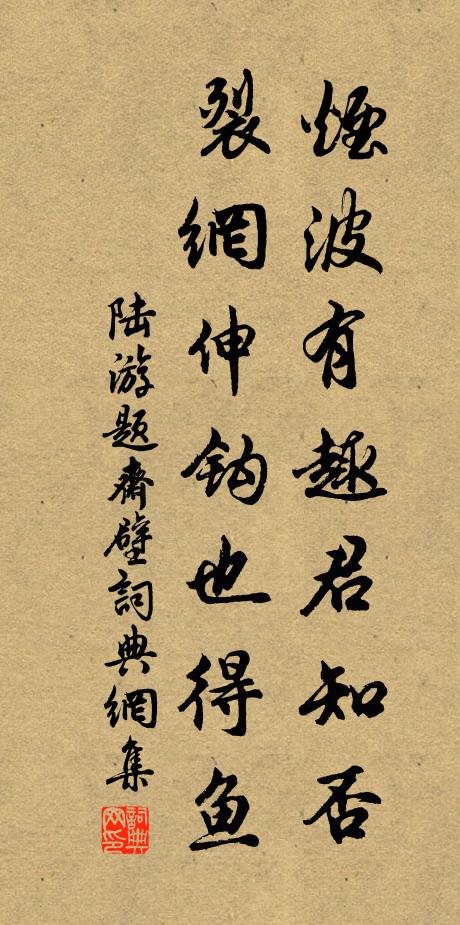 煙波有趣君知否
裂網伸鈎也得魚
陸游題齋壁詞典網集
詞典网印